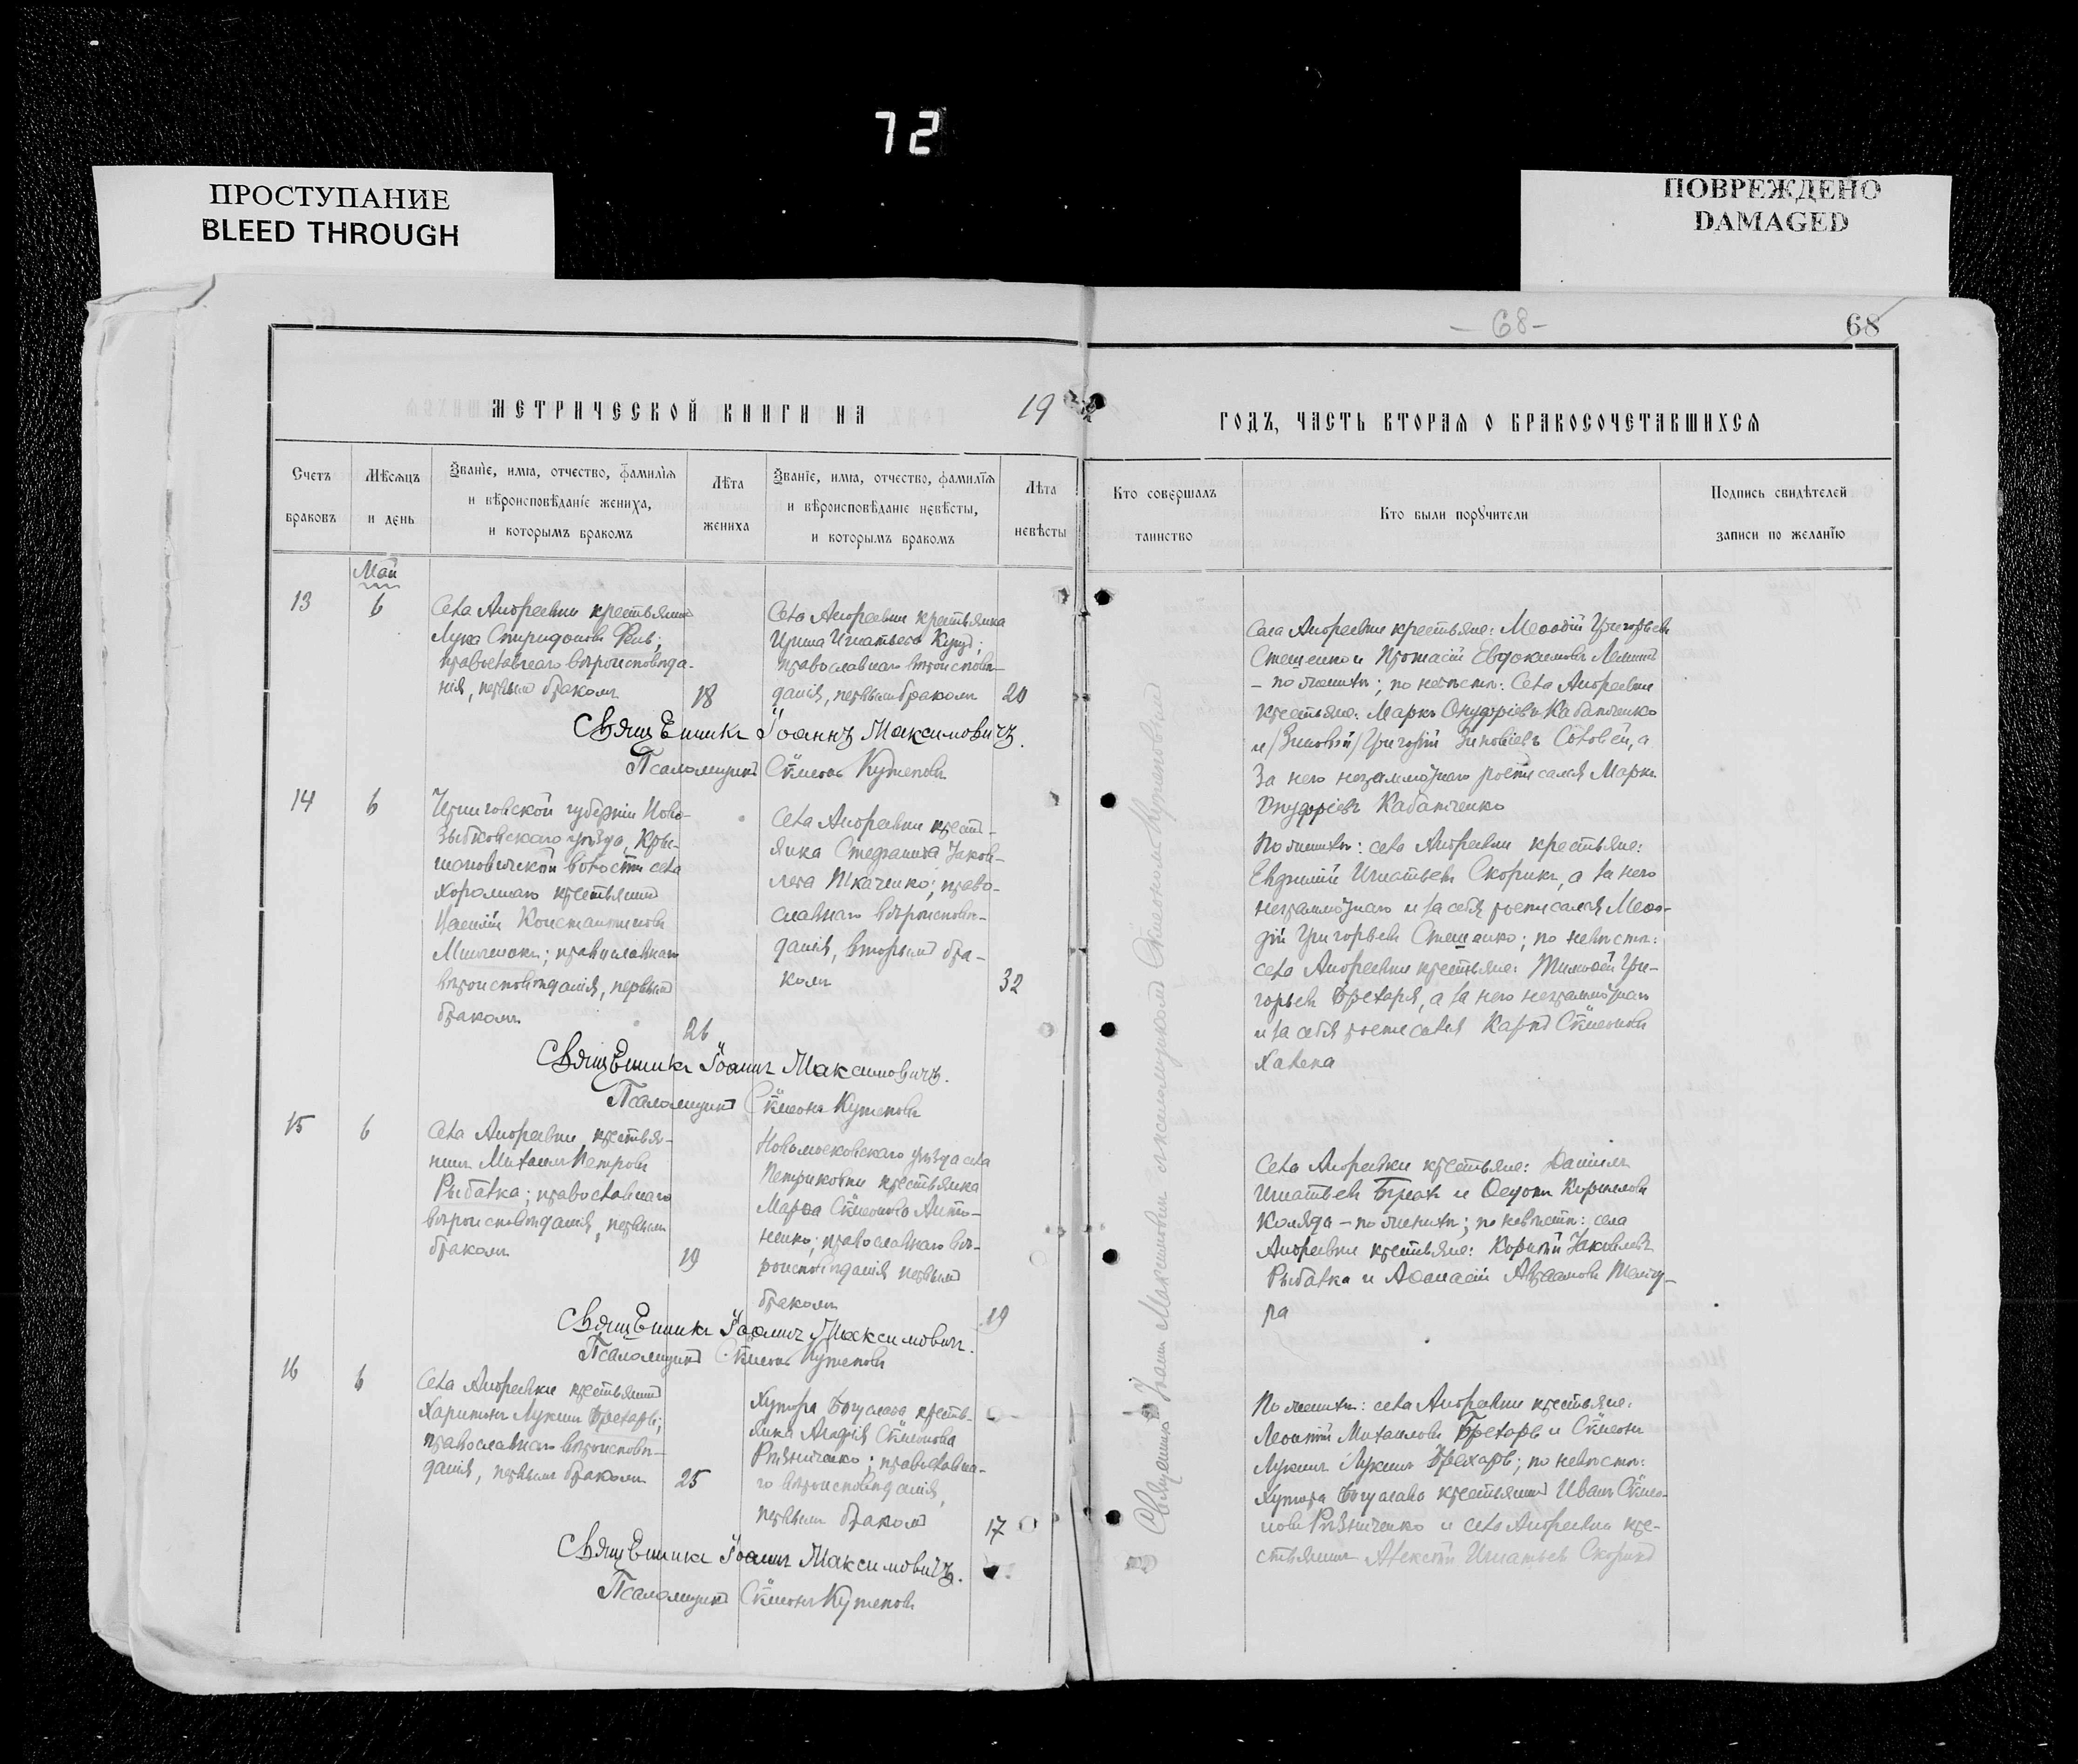 72
ПРОСТУПАНИЕ
BLEED THROUGH
ПОВРЕЖДЕНО
DAMAGED
- 68 -
68
МЕТРИЧЕСКОЙ КНИГИ НА 19
ГОДЪ, ЧАСТЬ ВТОРАЯ О БРАКОСОЧЕТАВШИХСЯ
Счетъ
браковъ
Мѣсяцъ
и день
Званіе, имя, отчество, фамилія
и вѣроисповѣданіе жениха,
и которымъ бракомъ
Лѣта
жениха
Званіе, имя, отчество, фамилія
и вѣроисповѣданіе невѣсты,
и которымъ бракомъ
Лѣта
невѣсты
Кто совершалъ
таинство
Кто были поручители
Подпись свидѣтелей
записи по желанію
Май
13
6
Села Андреевки крестьянинъ
Лука Спиридоновъ
православнаго вѣроисповѣда-
нія, первымъ бракомъ
18
Села Андреевки крестьянка
Ирина Игнатьева
православнаго вѣроисповѣ-
данія, первымъ бракомъ
20
Священникъ Іоаннъ Максимовичъ.
Псаломщикъ Сѵмеонъ Кутеповъ
Села Андреевки крестьяне: Меѳодій Григорьевъ
Стешенко и Протасій Евдокимовъ
- по женихѣ; по невѣстѣ: Села Андреевки
крестьяне: Маркъ Онуфріевъ Кабатченко
и /Зиновій/ Григорій Зиновіевъ Соловей, а
за него неграмотнаго росписался Маркъ
Онуфріевъ Кабатченко
14
6
Черниговской губерніи Ново-
зыбковскаго уѣзда,
волости села
крестьянинъ
Константиновъ
православнаго
вѣроисповѣданія, первымъ
бракомъ
26
Села Андреевки кресть-
янка Стефанида Яков-
лева Ткаченко; право-
славнаго вѣроисповѣ-
данія, вторымъ бра-
комъ
32
Священникъ Іоаннъ Максимовичъ.
Псаломщикъ Сѵмеонъ Кутеповъ
По женихѣ: села Андреевки крестьяне:
Евфимій Игнатьевъ Скорикъ, а за него
неграмотнаго и за себя росписался Меѳо-
дій Григорьевъ Стешенко; по невѣстѣ:
села Андреевки крестьяне: Тимоѳей Гри-
горьевъ Брехаря, а за него неграмотнаго
и за себя росписался Карпъ Сѵмеоновъ
Халепа
15
6
Села Андреевки крестья-
нинъ Михаилъ Петровъ
Рыбалка; православнаго
вѣроисповѣданія, первымъ
бракомъ
19
Новомосковскаго уѣзда села
Петриковки крестьянка
Марѳа Сѵмеонова Анто-
ненко; православнаго вѣ-
роисповѣданія первымъ
бракомъ
19
Священникъ Іоаннъ Максимовичъ.
Псаломщикъ Сѵмеонъ Кутеповъ
Села Андреевки крестьяне: Даніилъ
Игнатьевъ и Корниловъ
Коляда - по женихѣ; по невѣстѣ: села
Андреевки крестьяне: Яковлевъ
Рыбалка и Аѳанасій Авраамовъ
ра
16
6
Села Андреевки крестьянинъ
Харитонъ Лукинъ Брехарь;
православнаго вѣроисповѣ-
данія, первымъ бракомъ
25
Хутора Богуслава кресть-
янка Агафія Сѵмеонова
православна-
го вѣроисповѣданія,
первымъ бракомъ
17
Священникъ Іоаннъ Максимовичъ.
Псаломщикъ Сѵмеонъ Кутеповъ
По женихѣ: села Андреевки крестьяне:
Леонтій Михаиловъ Брехарь и Сѵмеонъ
Лукинъ Брехарь; по невѣстѣ:
Хутора Богуслава крестьянинъ Иванъ Сѵмео-
новъ и села Андреевки кре-
стьянинъ Алексѣй Игнатьевъ Скорикъ
Священникъ Іоаннъ Максимовичъ съ псаломщикомъ Сѵмеономъ Кутеповымъ